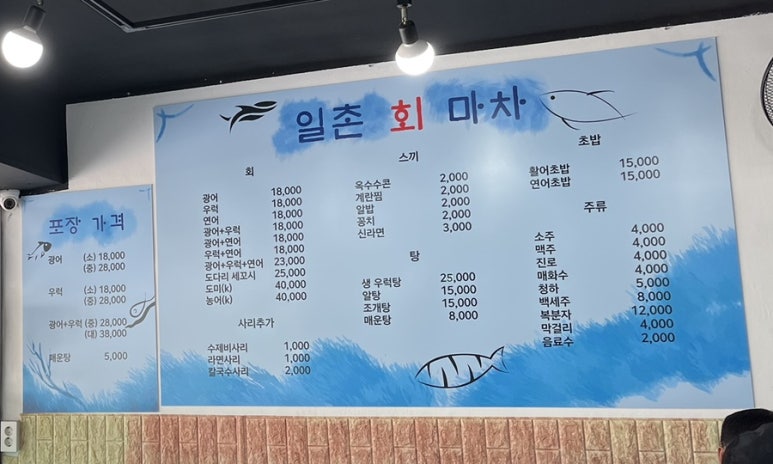 일촌 회 마차
회
광어 18,000
우럭 18,000
연어 18,000
광어+우럭 18,000
광어+연어 18,000
우럭+연어 18,000
광어+우럭+연어 23,000
도다리 세꼬시 25,000
도미(k) 40,000
농어(k) 40,000
사리추가
수제비사리 1,000
라면사리 1,000
칼국수사리 2,000
스끼
옥수수콘 2,000
계란찜 2,000
알밥 2,000
꽁치 2,000
신라면 3,000
탕
생 우럭탕 25,000
알탕 15,000
조개탕 15,000
매운탕 8,000
초밥
활어초밥 15,000
연어초밥 15,000
주류
소주 4,000
맥주 4,000
진로 4,000
매화수 4,000
청하 5,000
백세주 8,000
복분자 12,000
막걸리 4,000
음료수 2,000
포장 가격
광어 (소) 18,000
(중) 28,000
우럭 (소) 18,000
(중) 28,000
광어+우럭 (중) 28,000
(대) 38,000
매운탕 5,000